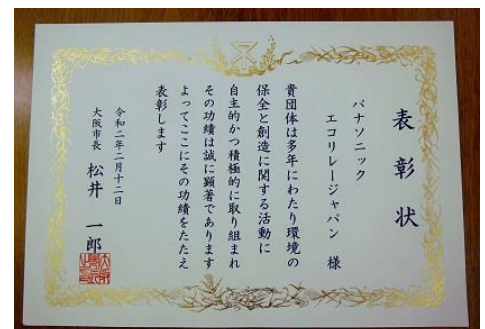 表彰状
パナソニック
エコリレージャパン 様
貴団体は多年にわたり環境の
保全と創造に関する活動に
自主的かつ積極的に取り組まれ
その功績は誠に顕著であります
よってここにその功績をたたえ
表彰します
令和二年二月十二日
大阪市長 松井 一郎